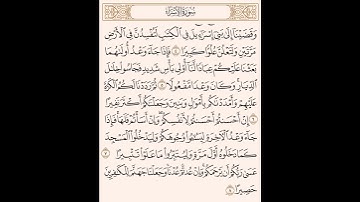 سُورَةُ الإِسْرَاءِ
وَقَضَيْنَآ إِلَىٰ بَنِىٓ إِسْرَٰٓءِيلَ فِى ٱلْكِتَٰبِ لَتُفْسِدُنَّ فِى ٱلْأَرْضِ
مَرَّتَيْنِ وَلَتَعْلُنَّ عُلُوًّا كَبِيرًا ٤ فَإِذَا جَآءَ وَعْدُ أُولَىٰهُمَا
بَعَثْنَا عَلَيْكُمْ عِبَادًا لَّنَآ أُو۟لِى بَأْسٍ شَدِيدٍ فَجَاسُوا۟ خِلَٰلَ
ٱلدِّيَارِ وَكَانَ وَعْدًا مَّفْعُولًا ٥ ثُمَّ رَدَدْنَا لَكُمُ ٱلْكَرَّةَ
عَلَيْهِمْ وَأَمْدَدْنَٰكُم بِأَمْوَٰلٍ وَبَنِينَ وَجَعَلْنَٰكُمْ أَكْثَرَ نَفِيرًا ٦
إِنْ أَحْسَنتُمْ أَحْسَنتُمْ لِأَنفُسِكُمْ وَإِنْ أَسَأْتُمْ فَلَهَا فَإِذَا
جَآءَ وَعْدُ ٱلْءَاخِرَةِ لِيَسُۥٓـُٔوا۟ وُجُوهَكُمْ وَلِيَدْخُلُوا۟ ٱلْمَسْجِدَ
كَمَا دَخَلُوهُ أَوَّلَ مَرَّةٍ وَلِيُتَبِّرُوا۟ مَا عَلَوْا۟ تَتْبِيرًا ٧
عَسَىٰ رَبُّكُمْ أَن يَرْحَمَكُمْ وَإِنْ عُدتُّمْ عُدْنَا وَجَعَلْنَا جَهَنَّمَ لِلْكَٰفِرِينَ
حَصِيرًا ٨